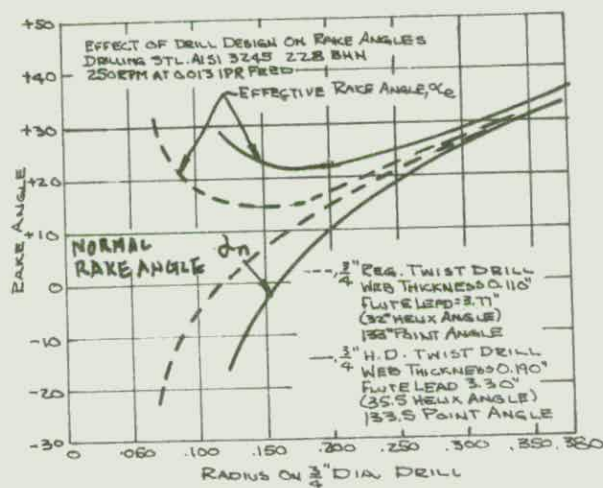 EFFECT OF DRILL DESIGN ON RAKE ANGLES
DRILLING STL. AISI 3245 228 BHN
250RPM AT 0.013 IPR FEED
EFFECTIVE RAKE ANGLE, αe
+50
+40
+30
+20
+10
0
-10
-20
-30
RAKE ANGLE
NORMAL
RAKE ANGLE
αn
---, 3/4" REG. TWIST DRILL
WEB THICKNESS 0.110"
FLUTE LEAD = 3.77"
(32° HELIX ANGLE)
133° POINT ANGLE
3/4" H.D. TWIST DRILL
WEB THICKNESS 0.190"
FLUTE LEAD 3.30"
(35.5 HELIX ANGLE)
133.5 POINT ANGLE
0 .050 .100 .150 .200 .250 .300 .350 .380
RADIUS ON 3/4" DIA. DRILL